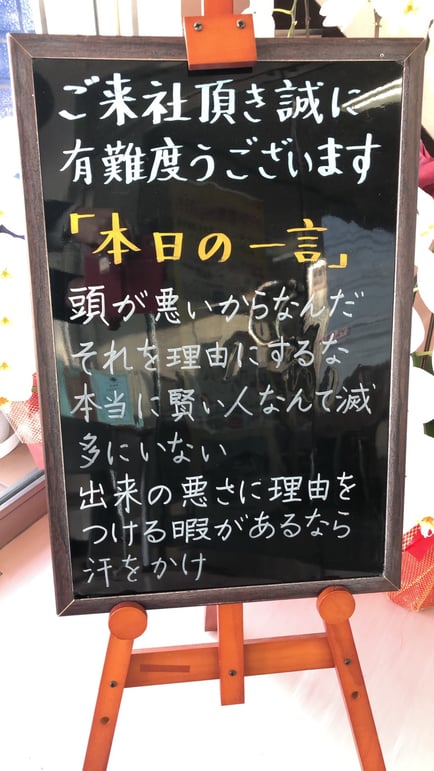 ご来社頂き誠に
有難度うございます
「本日の一言」
頭が悪いからなんだ
それを理由にするな
本当に賢い人なんて滅
多にいない
出来の悪さに理由を
つける暇があるなら
汗をかけ